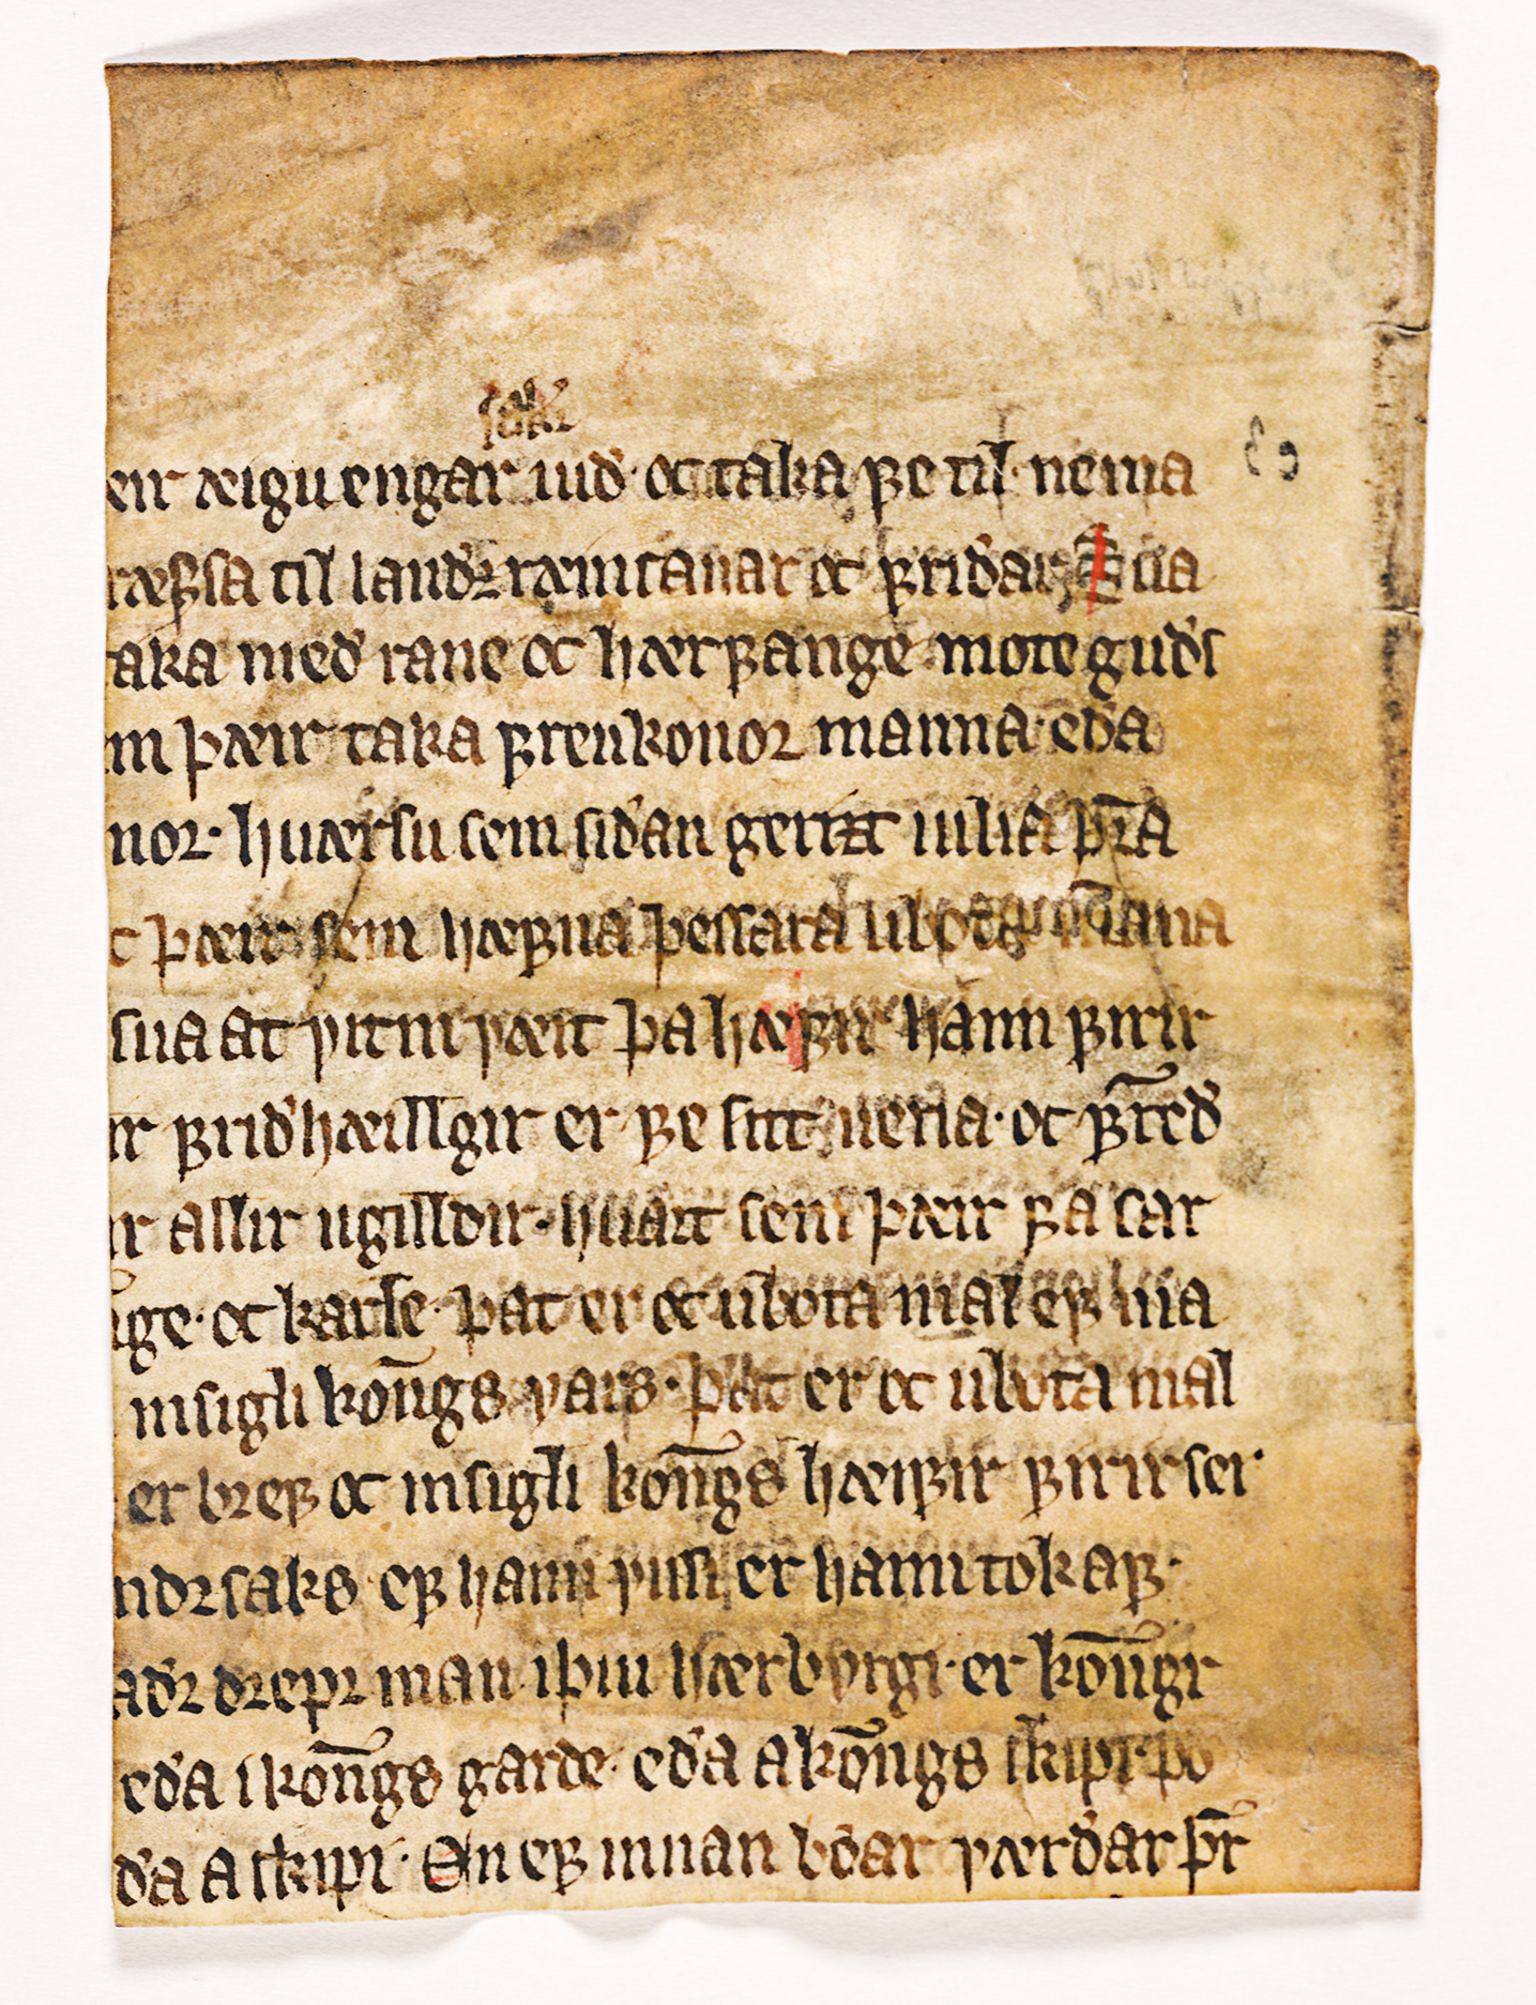 sakar
eir æigu engar við. oc taka ꝼe til. nema
ræꝼsa til landz ræinsanar oc ꝼriðar Sua
aka með rane oc hærꝼange mote guðs
m þæir taka ꝼrenkonor manna. eða
nor. huærsu sem siðan gerizt vilia þr̄a
c þæir sem hæꝼna þessara ubota m̄anna
sua at vitni væit þa hæꝼir hann ꝼirir
ir ꝼriðhæillgir er ꝼe sitt veria. oc ꝼr̄ceð
ir allir ugilldir. huart sem þæir ꝼa sar
nge. oc karlſe. þat er oc ubota mal eꝼ ma
insigli kōngs vars. þat er oc ubota mal
er breꝼ oc insigli kōngs hæiꝼir ꝼirir ser
ndrsaks eꝼ hann vissi er hann tok aꝼ.
aðr drepr man iþui hærbyrgi. er kōngr
eða i kōngs garðe. eða a kōngs skipi. þo
ða a skipi. En eꝼ innan bōar værðar þr̄